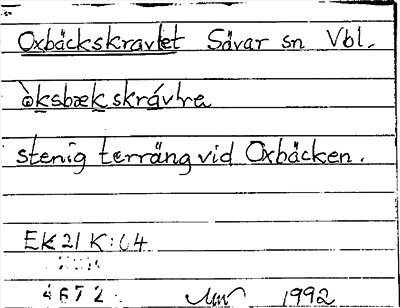 Oxbäckskravlet Sävar sn Vbl.
òksbækskrávlre
stenig terräng vid Oxbäcken.
EK 21 K:
4672
1992